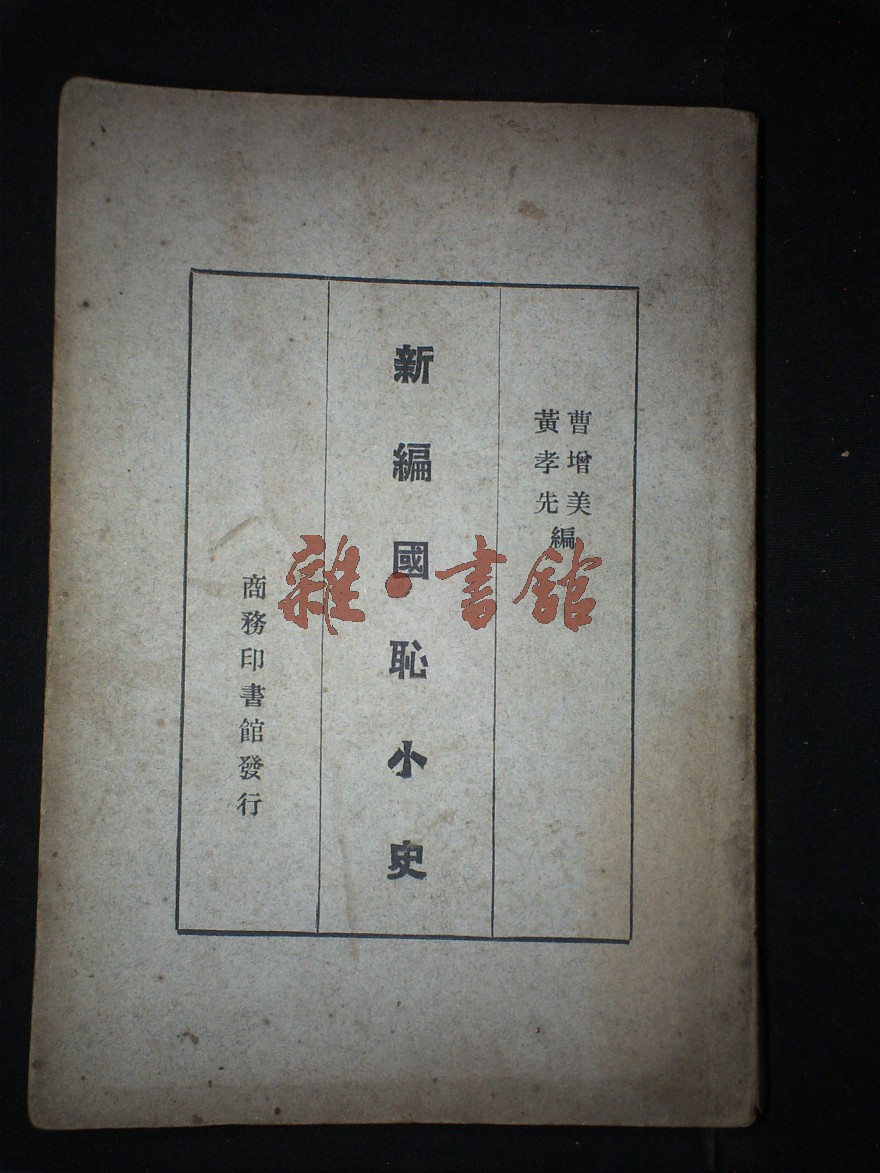 曹增美
黃孝先
編
新編國恥小史
商務印書館發行
雜·書館